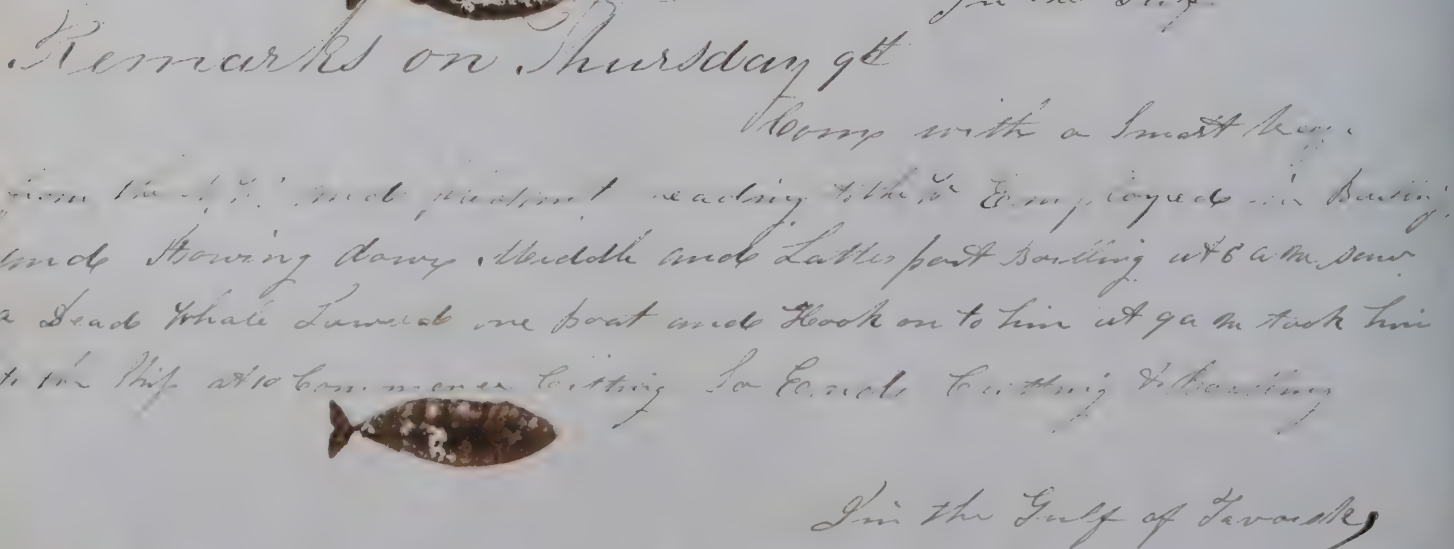 In the Ship
Remarks on Thursday 9th
Comp with a Smart
from the and heading to the Employed in Boiling
and Stowing down Middle and Latter part Boiling at 6 a m saw
a Dead Whale Lowerd one boat and Hook on to him at 9 a m took him
to the Ship at 10 Commence Cutting So Ends Cutting & Boiling
In the Gulf of